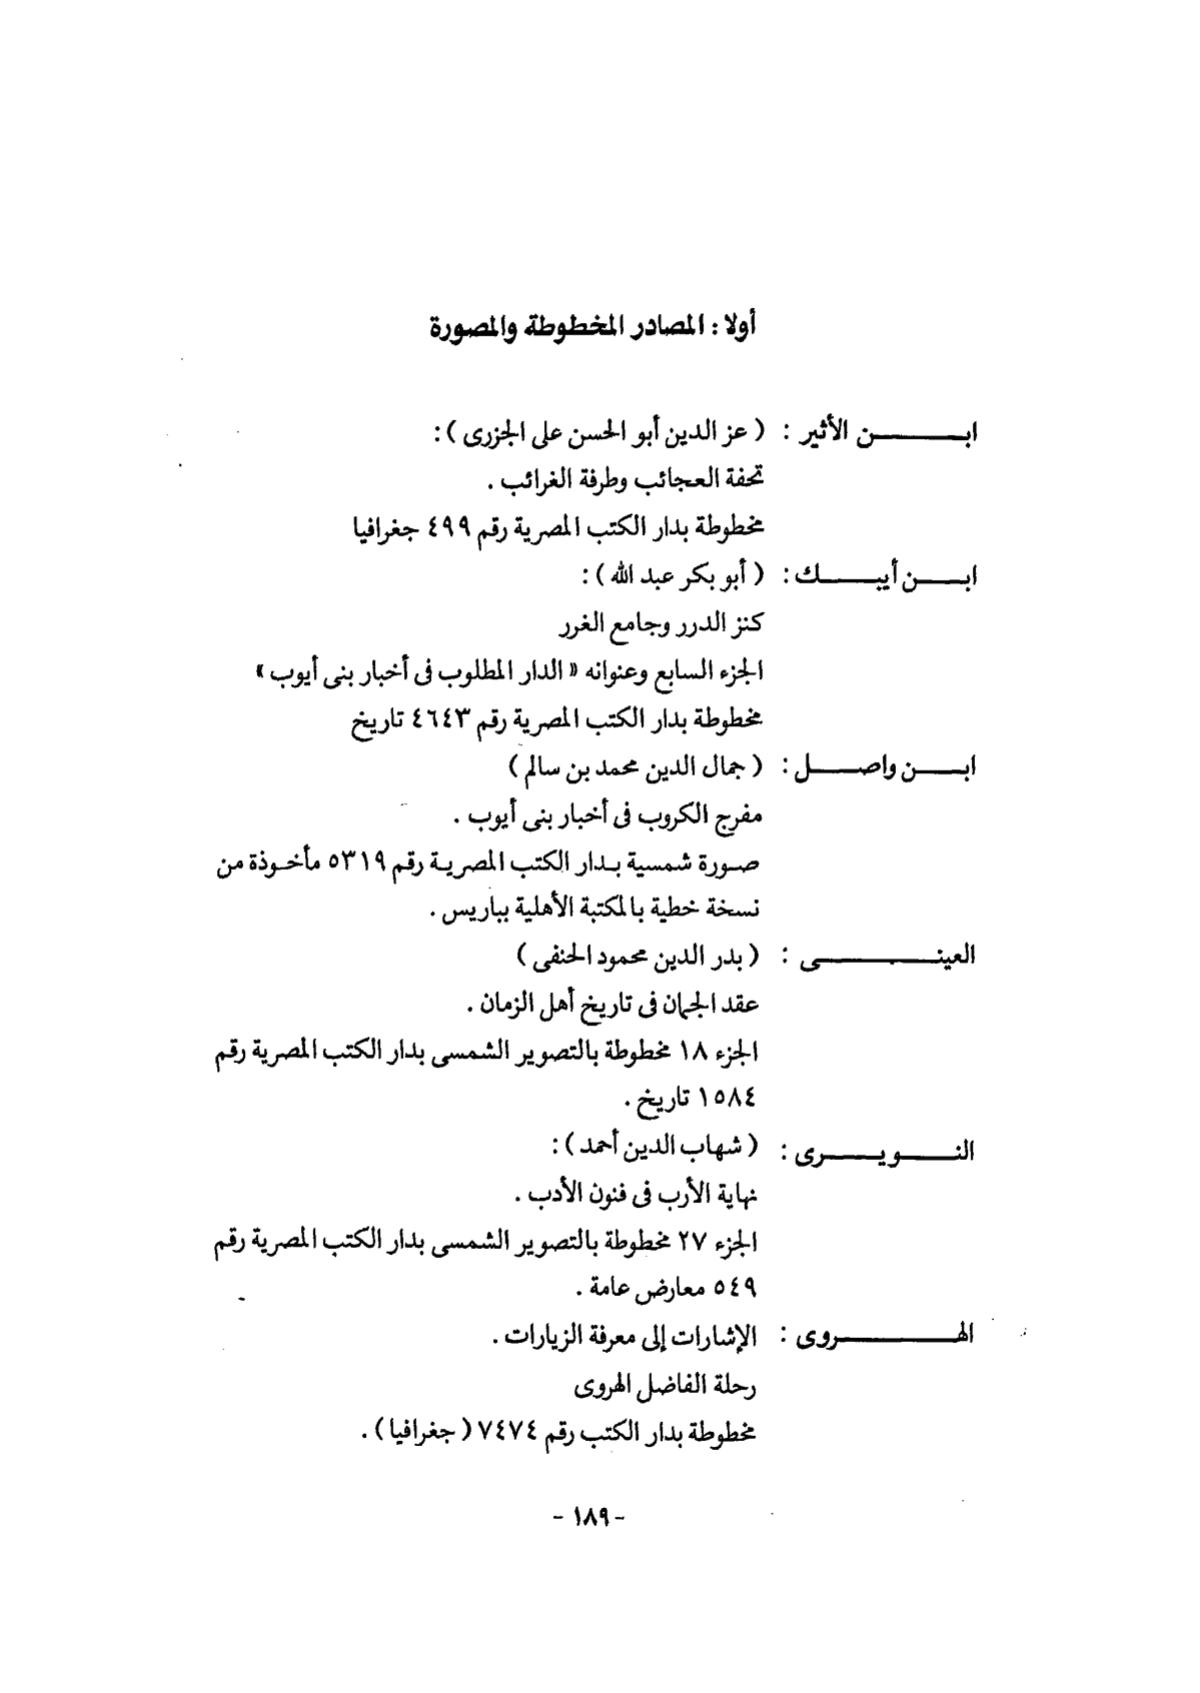 أولا : المصادر المخطوطة والمصورة
ابن الأثير : ( عز الدين أبو الحسن على الجزرى ) :
تحفة العجائب وطرفة الغرائب .
مخطوطة بدار الكتب المصرية رقم ٤٩٩ جغرافيا
ابن أيبك : ( أبو بكر عبد الله ) :
كنز الدرر وجامع الغرر
الجزء السابع وعنوانه « الدار المطلوب فى أخبار بنى أيوب »
مخطوطة بدار الكتب المصرية رقم ٤٦٤٣ تاريخ
ابن واصل : ( جمال الدين محمد بن سالم )
مفرج الكروب فى أخبار بنى أيوب .
صورة شمسية بدار الكتب المصرية رقم ٥٣١٩ مأخوذة من
نسخة خطية بالمكتبة الأهلية بباريس .
العينى : ( بدر الدين محمود الحنفى )
عقد الجمان فى تاريخ أهل الزمان .
الجزء ١٨ مخطوطة بالتصوير الشمسى بدار الكتب المصرية رقم
١٥٨٤ تاريخ .
النويرى : ( شهاب الدين أحمد ) :
نهاية الأرب فى فنون الأدب .
الجزء ٢٧ مخطوطة بالتصوير الشمسى بدار الكتب المصرية رقم
٥٤٩ معارض عامة .
الهروى : الإشارات إلى معرفة الزيارات .
رحلة الفاضل الهروى
مخطوطة بدار الكتب رقم ٧٤٧٤ ( جغرافيا ) .
- ١٨٩ -